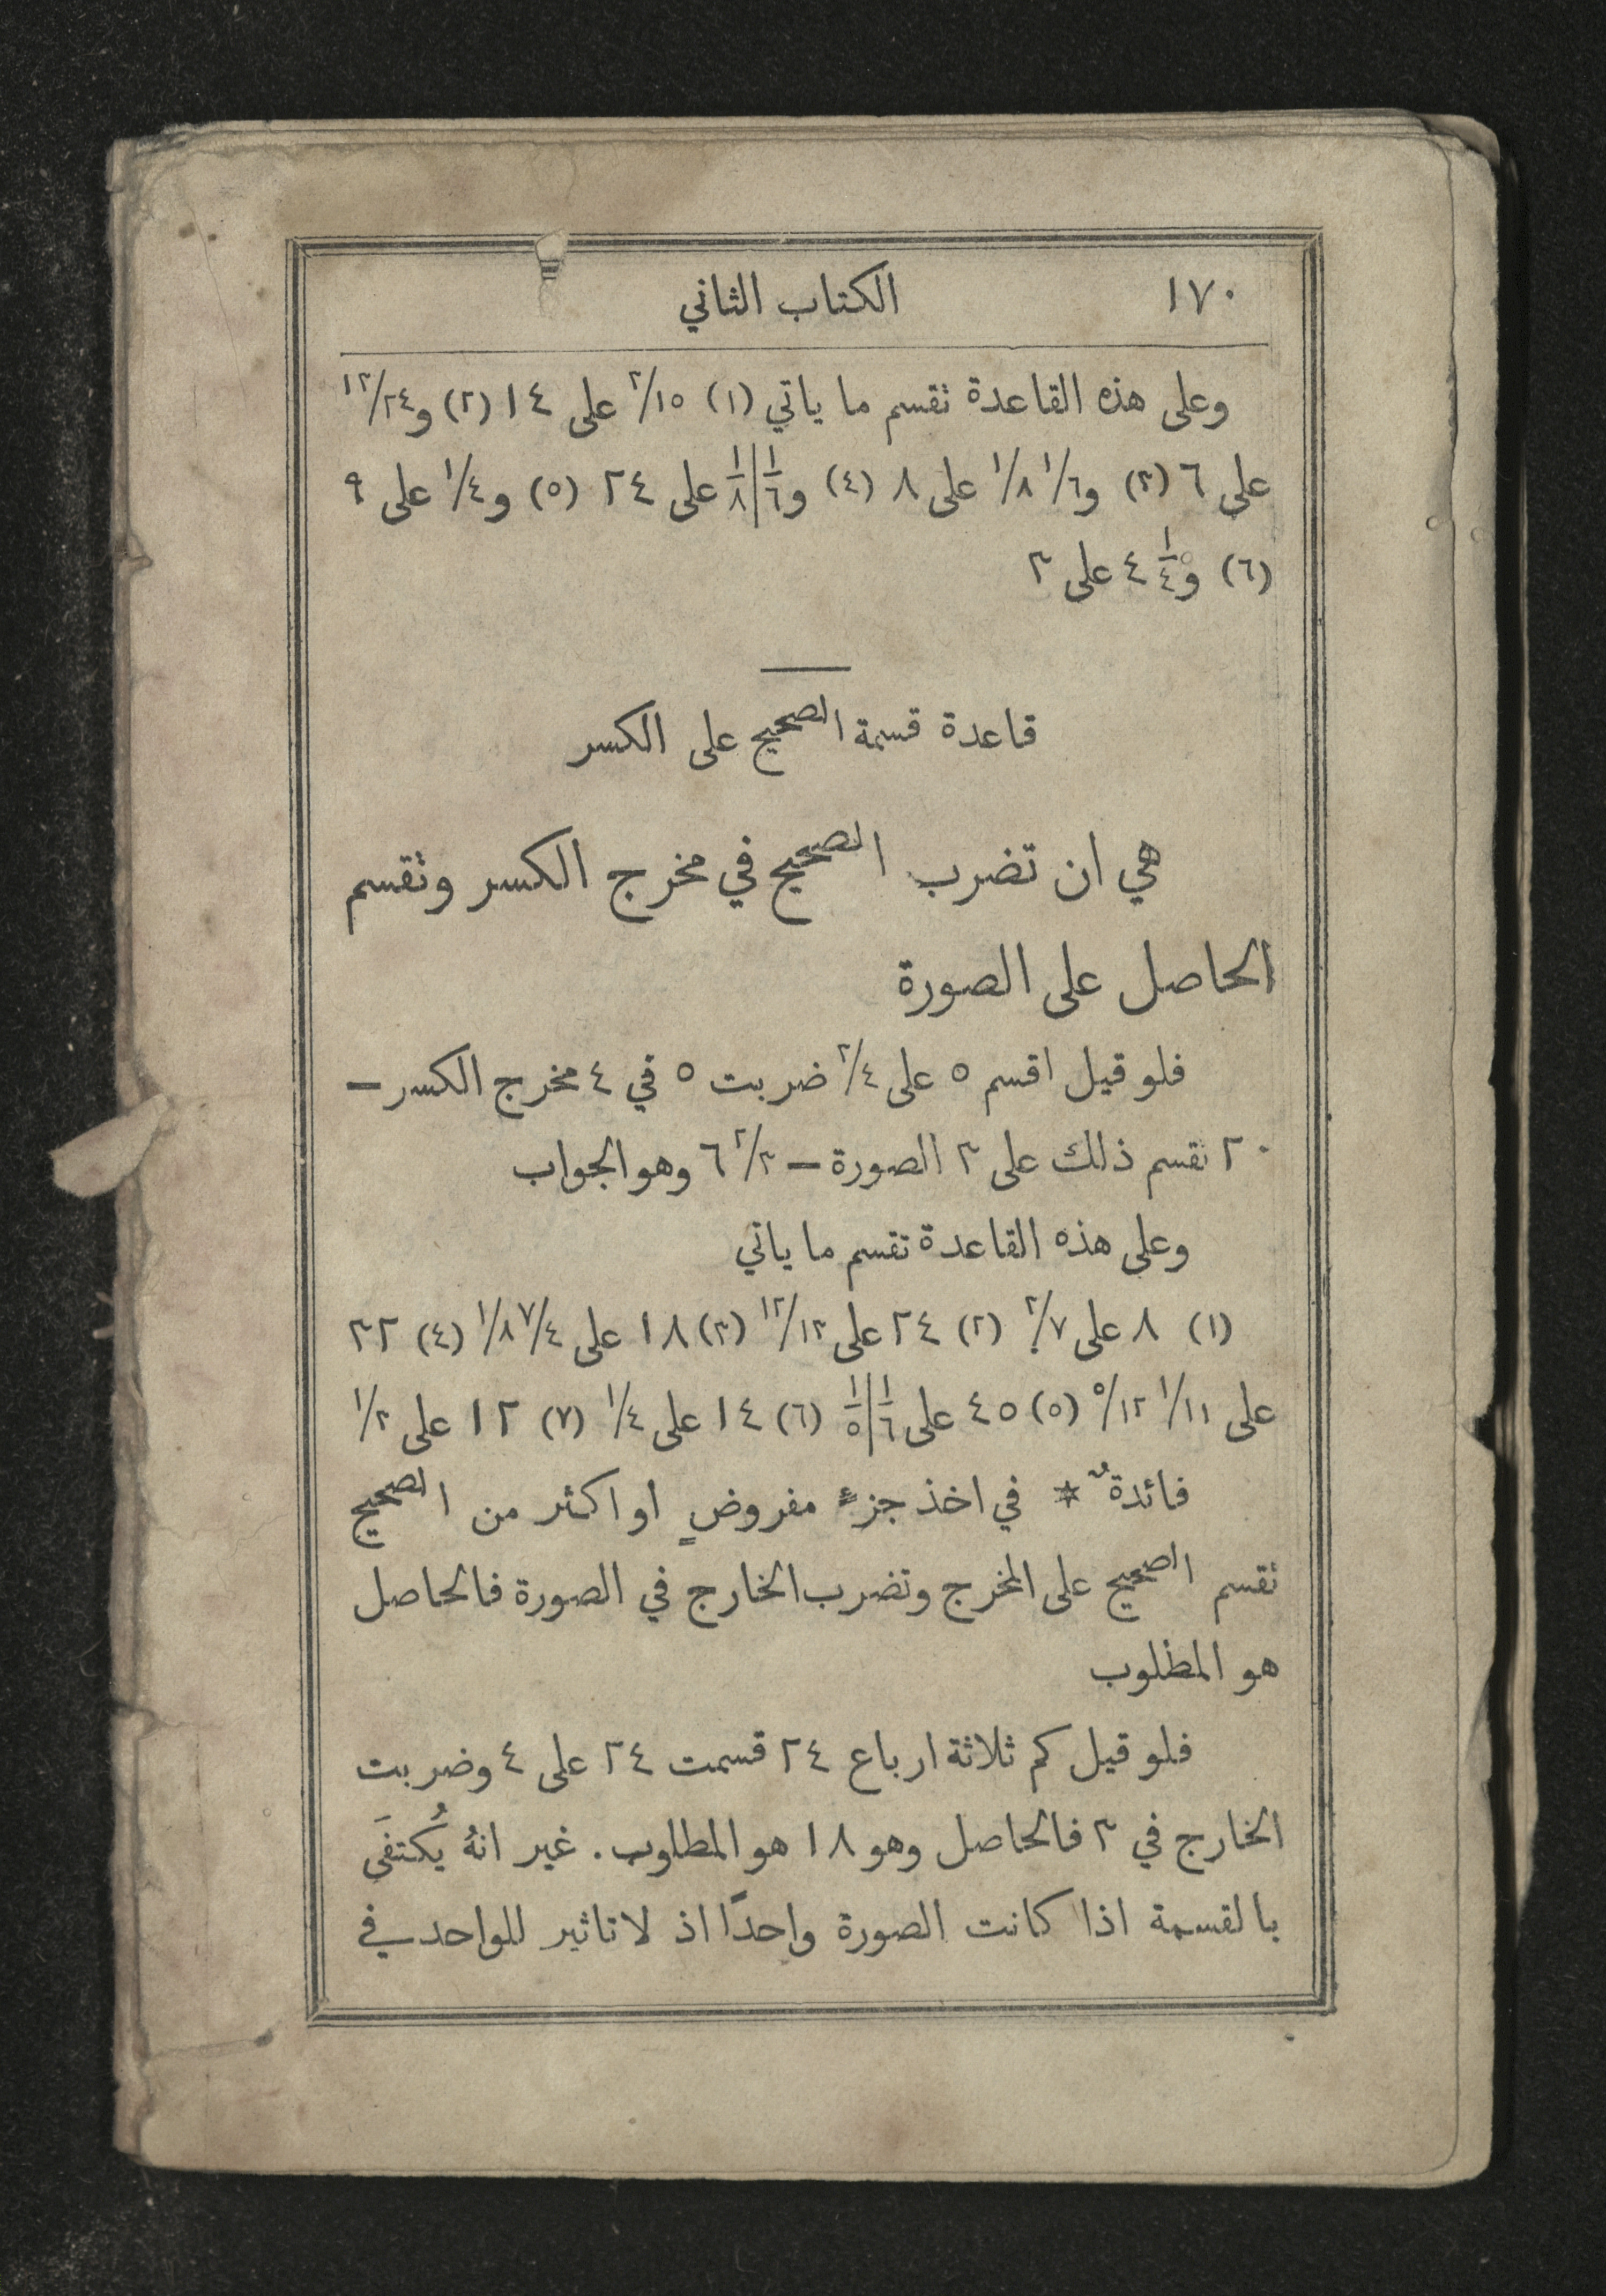 ١٧٠ الكتاب الثاني
وعلى هذه القاعدة نقسم ما ياتي (١) ٢/١٥ على ١٤ (٢) و١٣/٢٤
على ٦ (٣) و١/٦ ١/٨ على ٨ (٤) و١/٦|١/٨ على ٢٤ (٥) و١/٤ على ٩
(٦) و١/٤ ٤ على ٣
قاعدة قسمة الصحيح على الكسر
هي ان تضرب الصحيح في مخرج الكسر ونقسم
الحاصل على الصورة
فلو قيل اقسم ٥ على ٣/٤ ضربت ٥ في ٤ مخرج الكسر —
٢٠ نقسم ذلك على ٣ الصورة — ٢/٣ ٦ وهو الجواب
وعلى هذه القاعدة تقسم ما ياتي
(١) ٨ على ٢/٧ (٢) ٢٤ على ١٢/١٣ (٣) ١٨ على ٧/٤ ١/٨ (٤) ٣٢
على ١/١١ ٥/١٢ (٥) ٤٥ على ١/٦|١/٥ (٦) ١٤ على ١/٤ (٧) ١٢ على ١/٣
فائدةٌ * في اخذ جزءٍ مفروضٍ او اكثر من الصحيح
نقسم الصحيح على المخرج وتضرب الخارج في الصورة فالحاصل
هو المطلوب
فلو قيل كم ثلاثة ارباع ٢٤ قسمت ٢٤ على ٤ وضربت
الخارج في ٣ فالحاصل وهو ١٨ هو المطلوب. غير انهُ يُكتفَى
بالقسمة اذا كانت الصورة واحدًا اذ لا تاثير للواحد في